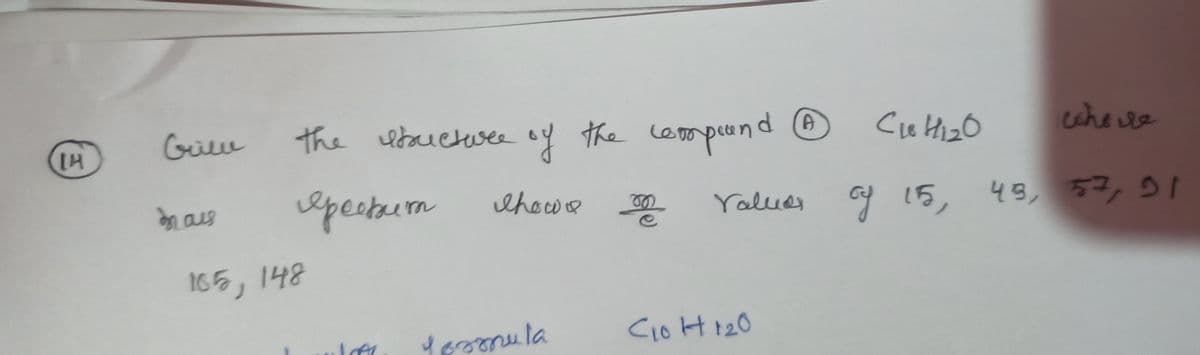 14 Give the structure of the compound A C10H12O whose
mass spectrum shows m/e values of 15, 43, 57, 91
105, 148
formula C10H12O